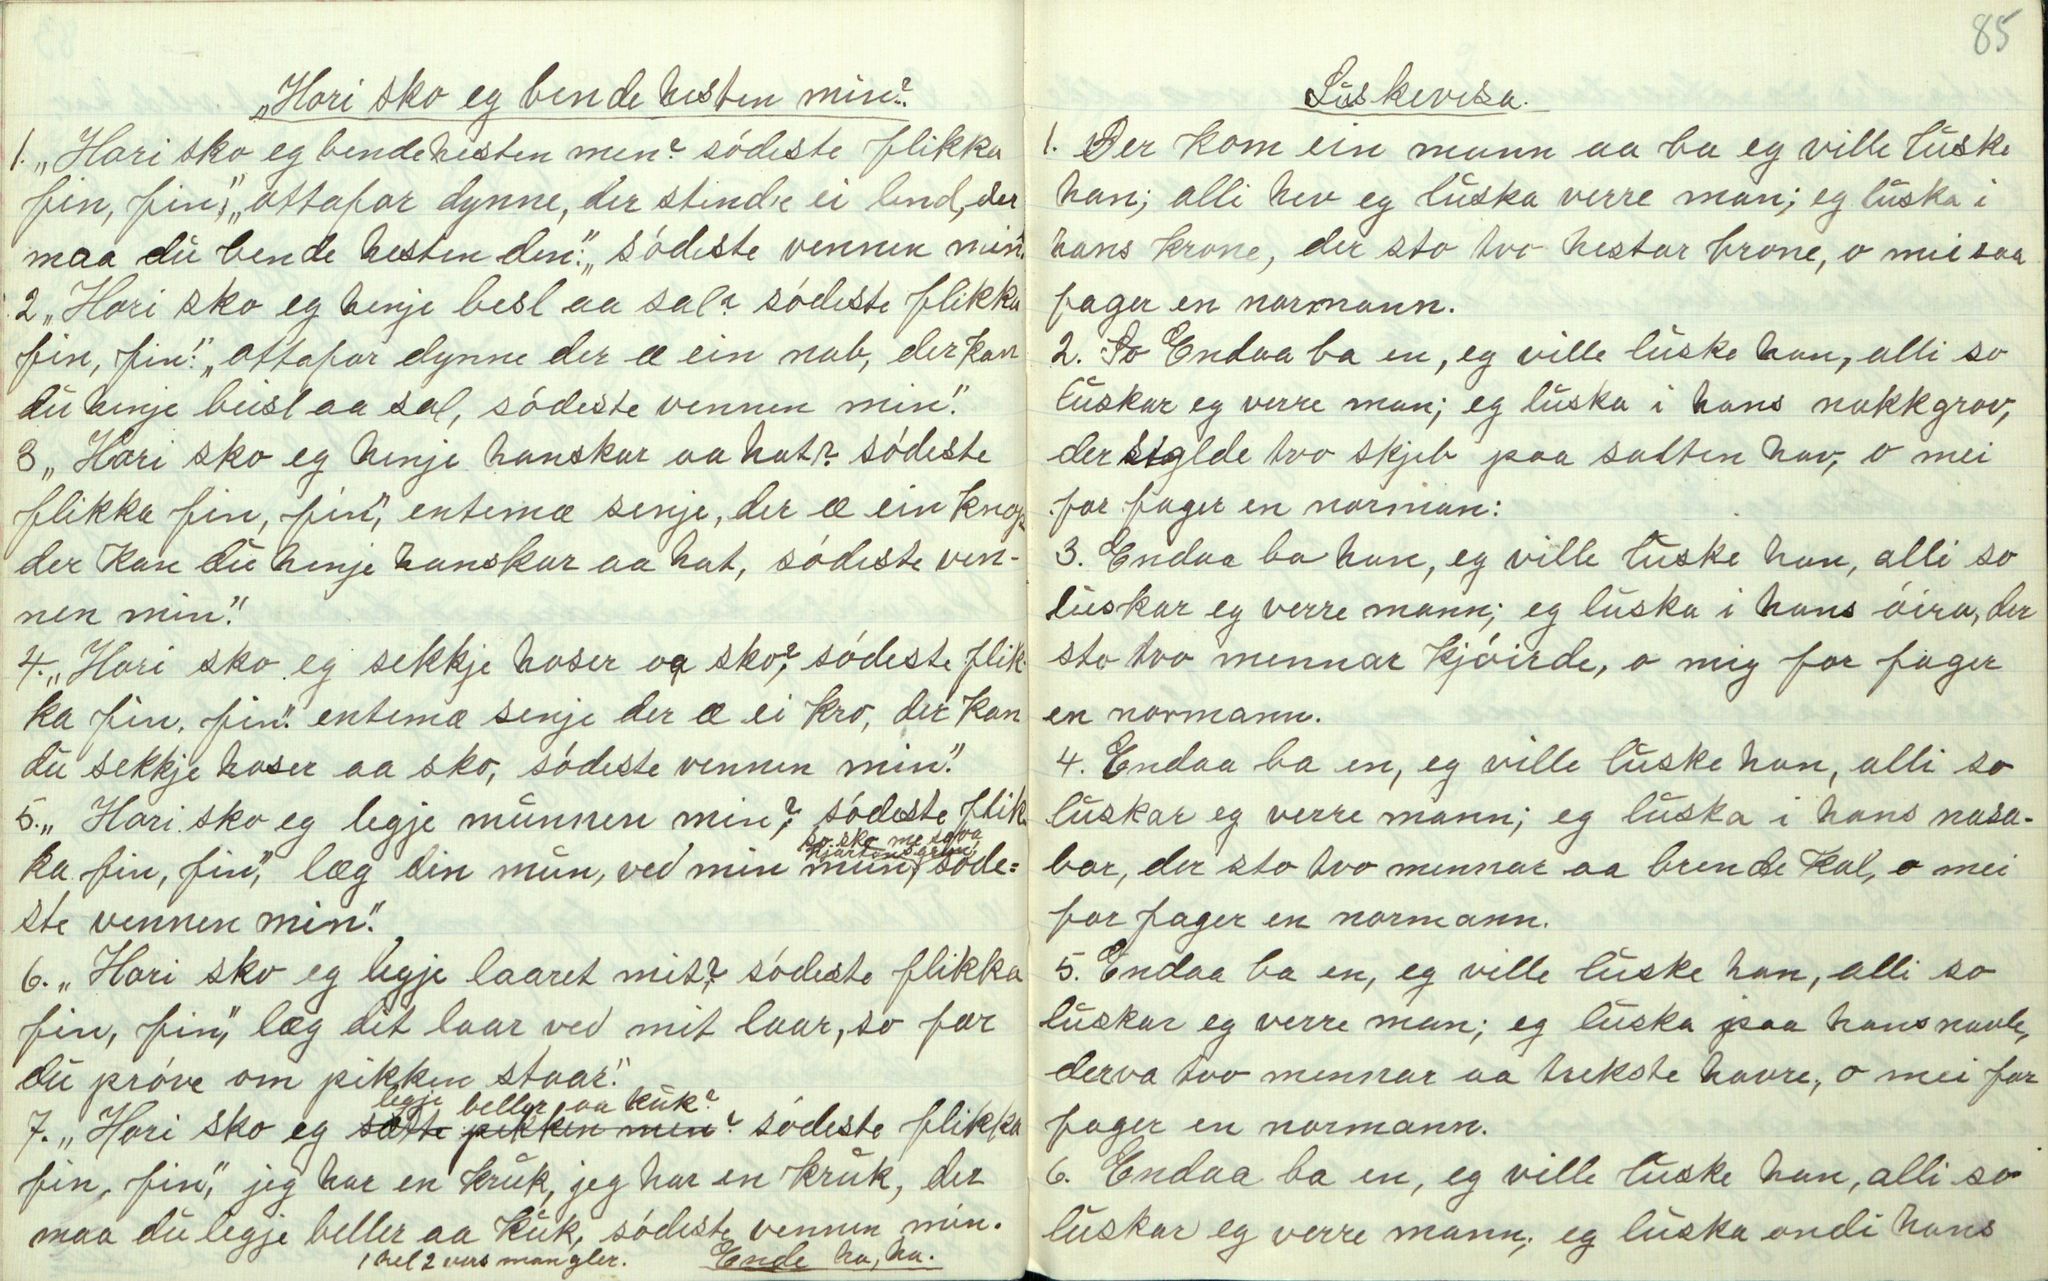 „Hori sko eg bende hesten min?"
1. „Hori sko eg bende hesten min? södeste flikka
fin, fin", „attafor dynne, der stend'e ei lind, der
maa du bende hesten din", södeste vennen min.
2 „Hori sko eg henje besl aa sal? södeste flikka
fin, fin". „attafor dynne der æ ein nab, der kan
du henje beisl aa sal, södeste vennen min".
3 „Hori sko eg henje hanskar aa hat? södeste
flikka fin, fin", entemæ senje, der æ ein knap
der kan du henje hanskar aa hat, södeste ven-
nen min".
4. „Hori sko eg sekkje hoser oa sko? södeste flik-
ka fin, fin". entemæ senje der æ ei kro, der kan
du sekkje hoser aa sko, södeste vennen min".
5. „Hori sko eg legje munnen min? södeste flik
so sko me sova
hjartans grun,
ka fin, fin", læg din mun, ved min mun, söde=
ste vennen min".
6. „Hori sko eg legje laaret mit? södeste flikka
fin, fin", læg dit laar ved mit laar, so fær
du pröve om pikken staar".
legje beller aa kuk?
7. „Hori sko eg sætte pikken min? södeste flikka
fin, fin", jeg har en kruk, jeg har en kruk, der
maa du legje beller aa kuk, södeste vennen min.
1 hel 2 vers mangler. Ende ha, ha.
85
Luskevisa.
1. Der kom ein mann aa ba eg ville luske
han; alli hev eg luska verre man; eg luska i
hans krone, der sto tvo hestar brone, o mei saa
fager en normann.
2. So Endaa ba en, eg ville luske han, alli so
luskar eg verre man; eg luska i hans nakkgrov,
der siglde tvo skjeb paa salten hav, o mei
for fager en norman:
3. Endaa ba han, eg ville luske han, alli so
luskar eg verre mann; eg luska i hans öira, der
sto tvo mennar kjöirde, o mig for fager
en normann.
4. Endaa ba en, eg ville luske han, alli so
luskar eg verre mann; eg luska i hans nasa-
bor, der sto tvo mennar aa brende kol, o mei
for fager en normann.
5. Endaa ba en, eg ville luske han, alli so
luskar eg verre man; eg luska paa hans navle,
derva tvo mennar aa trekste havre, o mei for
fager en normann.
6. Endaa ba en, eg ville luske han, alli so
luskar eg verre mann; eg luska ondi hans